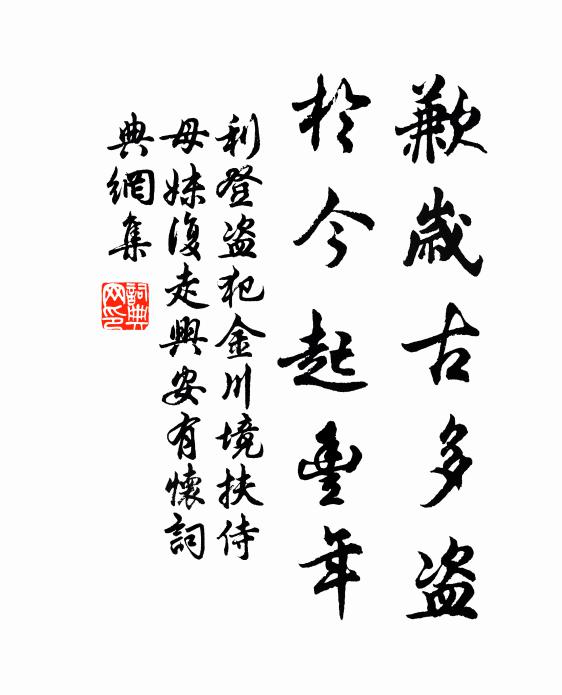 歉歲古多盜
於今起豐年
利登盜犯金川境扶侍
母妹復走興安有懷詞
典網集
詞典網印